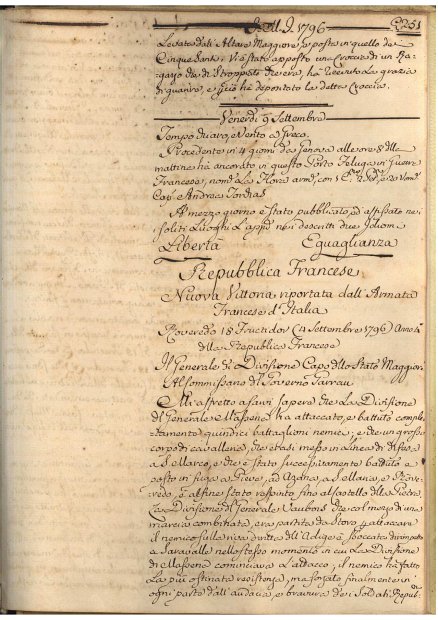 1796 251
Levato dall'Altare Maggiore, e posto in quello de'
Cinque Santi. Vi è stato apposto una Croccia di un Ra-
gazzo che di stroppiato che era, ha ricevuto la grazia
di guarire, e quì ha depositato la detta Croccia.
Venerdì 9 Settembre
Tempo chiaro, e Vento a Greco.
Procedente in 4 giorni da Genova alle ore 8 della
mattina ha ancorato in questo Porto Feluca in Guerra
Francese, nom.ta la Flora arm.ta, con 1
Cap. Andrea
A mezzo giorno è stato pubblicato, ed affissato nei
soliti Luoghi i due
Libertà Eguaglianza
Repubblica Francese
Nuova Vittoria riportata dall'Armata
Francese d'Italia
Roveredo 18 Fructidor (4 Settembre 1796) Anno 4
della Repubblica Francese
Il Generale di Divisione Capo dello Stato Maggiore
Al Commissario di Governo Garrau
Mi affretto a farvi sapere che La Divisione
del Generale Massena ha attaccato, e battuto comple-
tamente quindici battaglioni nemici; e che un grosso
corpo di cavalleria, che erasi messo in Linea di difesa
a S. Marco, e che è stato successivamente battuto e
posto in fuga a Pieve, ad a e Rove-
redo, è alfine stato respinto fino al Castello della Pietra
La Divisione del Generale Vaubois che col mezzo di una
marcia combinata, era partita da Storo ad attaccare
il nemico sulla riva dritta dell'Adige e
a Saravalle nello stesso momento in cui La Divisione
di Massena cominciava l'attacco; il nemico ha fatto
La più ostinata resistenza, ma forzato finalmente in
ogni parte dall'audacia, e bravura dei Soldati Repub.